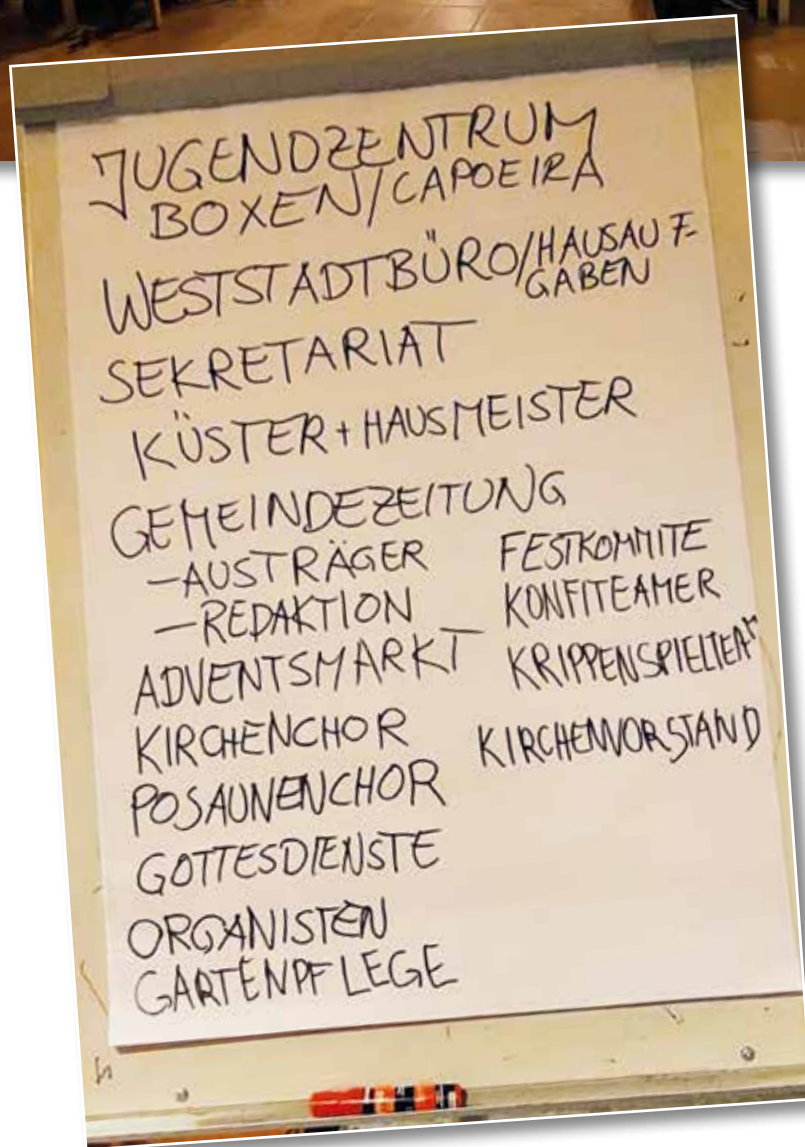 JUGENDZENTRUM
BOXEN/CAPOEIRA
WESTSTADTBÜRO/HAUSAUF-
GABEN
SEKRETARIAT
KÜSTER + HAUSMEISTER
GEMEINDEZEITUNG
—AUSTRÄGER
—REDAKTION
ADVENTSMARKT
KIRCHENCHOR
POSAUNENCHOR
GOTTESDIENSTE
ORGANISTEN
GARTENPFLEGE
FESTKOMMITE
KONFITEAMER
KRIPPENSPIELTEAM
KIRCHENVORSTAND